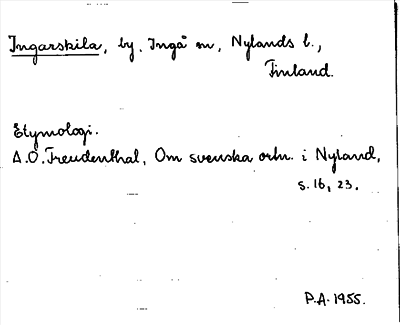 Ingarskila, by, Ingå sn, Nylands l.,
Finland.
Etymologi.
A.O. Freudenthal, Om svenska ortn. i Nyland,
s. 16, 23.
P.A. 1955.